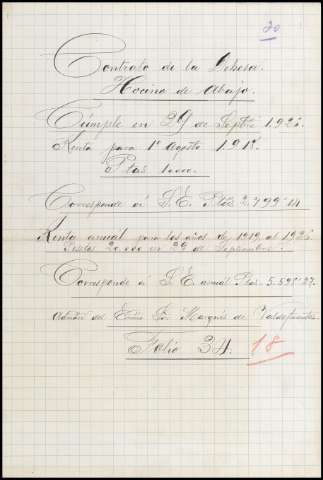 20
Contrato de la Dehesa.
Hocino de Abajo.
Cumple en 29 de Septbre 1926.
Renta para 1º Agosto 1918.
Ptas
Corresponde á S. E. Ptas 2.799'14
Renta anual para los años de 1919 al 1926
Pesetas 20.000 en 29 de Septiembre.
Corresponde á S. E. anual Ptas. 5.598'27.
del Excmo Sr. Marqués de Valdefuentes.
Folio 34.
18